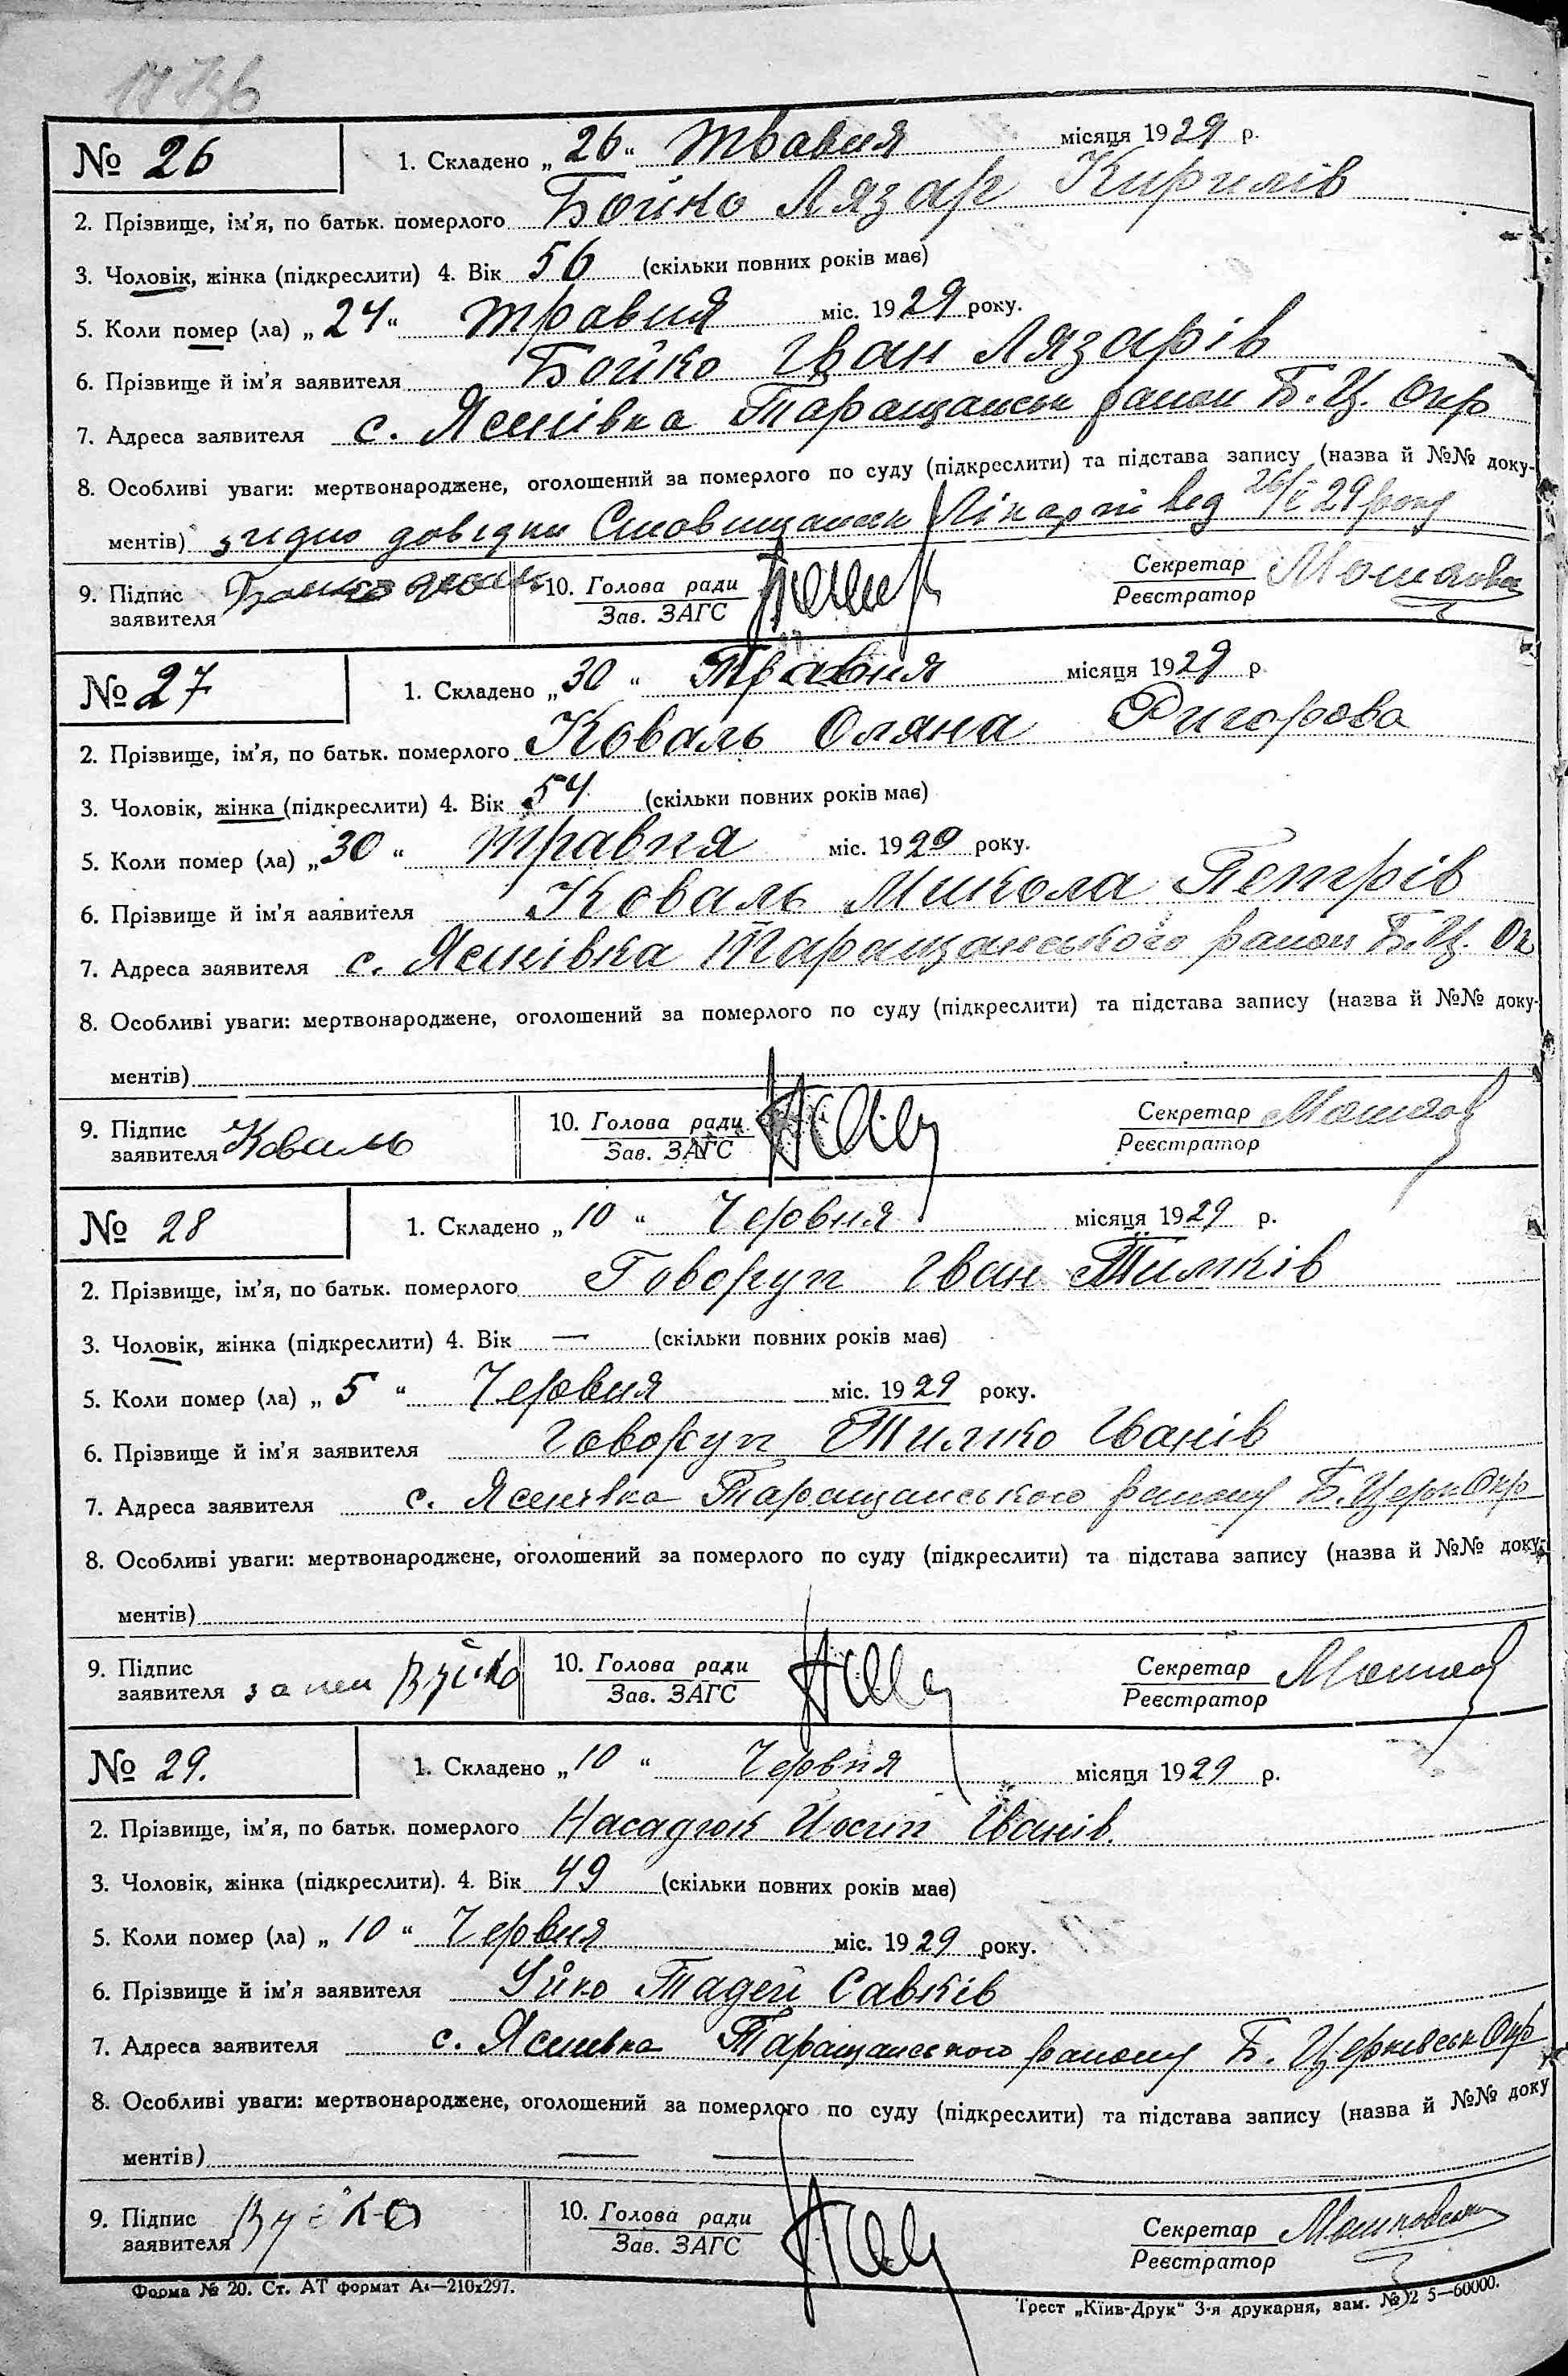 № 26
1. Складено „26“ травня місяця 1929 р.
2. Прізвище, ім'я, по батьк. померлого Бойко Лязар Кирилів
3. Чоловік, жінка (підкреслити) 4. Вік 56 (скільки повних років має)
5. Коли помер (ла) „24“ травня міс. 1929 року.
6. Прізвище й ім'я заявителя Бойко Іван Лязарів
7. Адреса заявителя с. Ясенівка Таращанськ район Б. Ц. Окр
8. Особливі уваги: мертвонароджене, оголошений за померлого по суду (підкреслити) та підстава запису (назва й №№ доку-
ментів) згідно довідки Ставищанськ Лікарні від 26/V 29 року
9. Підпис заявителя Бойко Іван
10. Голова ради
Зав. ЗАГС
Секретар
Реєстратор
№ 27
1. Складено „30“ Травня місяця 1929 р.
2. Прізвище, ім'я, по батьк. померлого Коваль Оляна Григорова
3. Чоловік, жінка (підкреслити) 4. Вік 54 (скільки повних років має)
5. Коли помер (ла) „30“ травня міс. 1929 року.
6. Прізвище й ім'я заявителя Коваль Микола Петрів
7. Адреса заявителя с. Ясенівка Таращанського район Б. Ц. Ок
8. Особливі уваги: мертвонароджене, оголошений за померлого по суду (підкреслити) та підстава запису (назва й №№ доку-
ментів)
9. Підпис заявителя Коваль
10. Голова ради
Зав. ЗАГС
Секретар
Реєстратор
№ 28
1. Складено „10“ Червня місяця 1929 р.
2. Прізвище, ім'я, по батьк. померлого Говорун Іван Тимків
3. Чоловік, жінка (підкреслити) 4. Вік — (скільки повних років має)
5. Коли помер (ла) „5“ Червня міс. 1929 року.
6. Прізвище й ім'я заявителя Говорун Тимко Іванів
7. Адреса заявителя с. Ясенівка Таращанського району Б. Церк Окр
8. Особливі уваги: мертвонароджене, оголошений за померлого по суду (підкреслити) та підстава запису (назва й №№ доку-
ментів)
9. Підпис заявителя
10. Голова ради
Зав. ЗАГС
Секретар
Реєстратор
№ 29.
1. Складено „10“ Червня місяця 1929 р.
2. Прізвище, ім'я, по батьк. померлого Насадюк Йосип Іванів.
3. Чоловік, жінка (підкреслити). 4. Вік 49 (скільки повних років має)
5. Коли помер (ла) „10“ Червня міс. 1929 року.
6. Прізвище й ім'я заявителя Уйко Тадей Савків
7. Адреса заявителя с. Ясенівка Таращанського району Б. Церківськ Окр
8. Особливі уваги: мертвонароджене, оголошений за померлого по суду (підкреслити) та підстава запису (назва й №№ доку
ментів)
9. Підпис заявителя Вуйко
10. Голова ради
Зав. ЗАГС
Секретар
Реєстратор
Форма № 20. Ст. АТ формат А₄—210x297.
Трест „Київ-Друк“ 3-я друкарня, зам. № 2 5—60000.